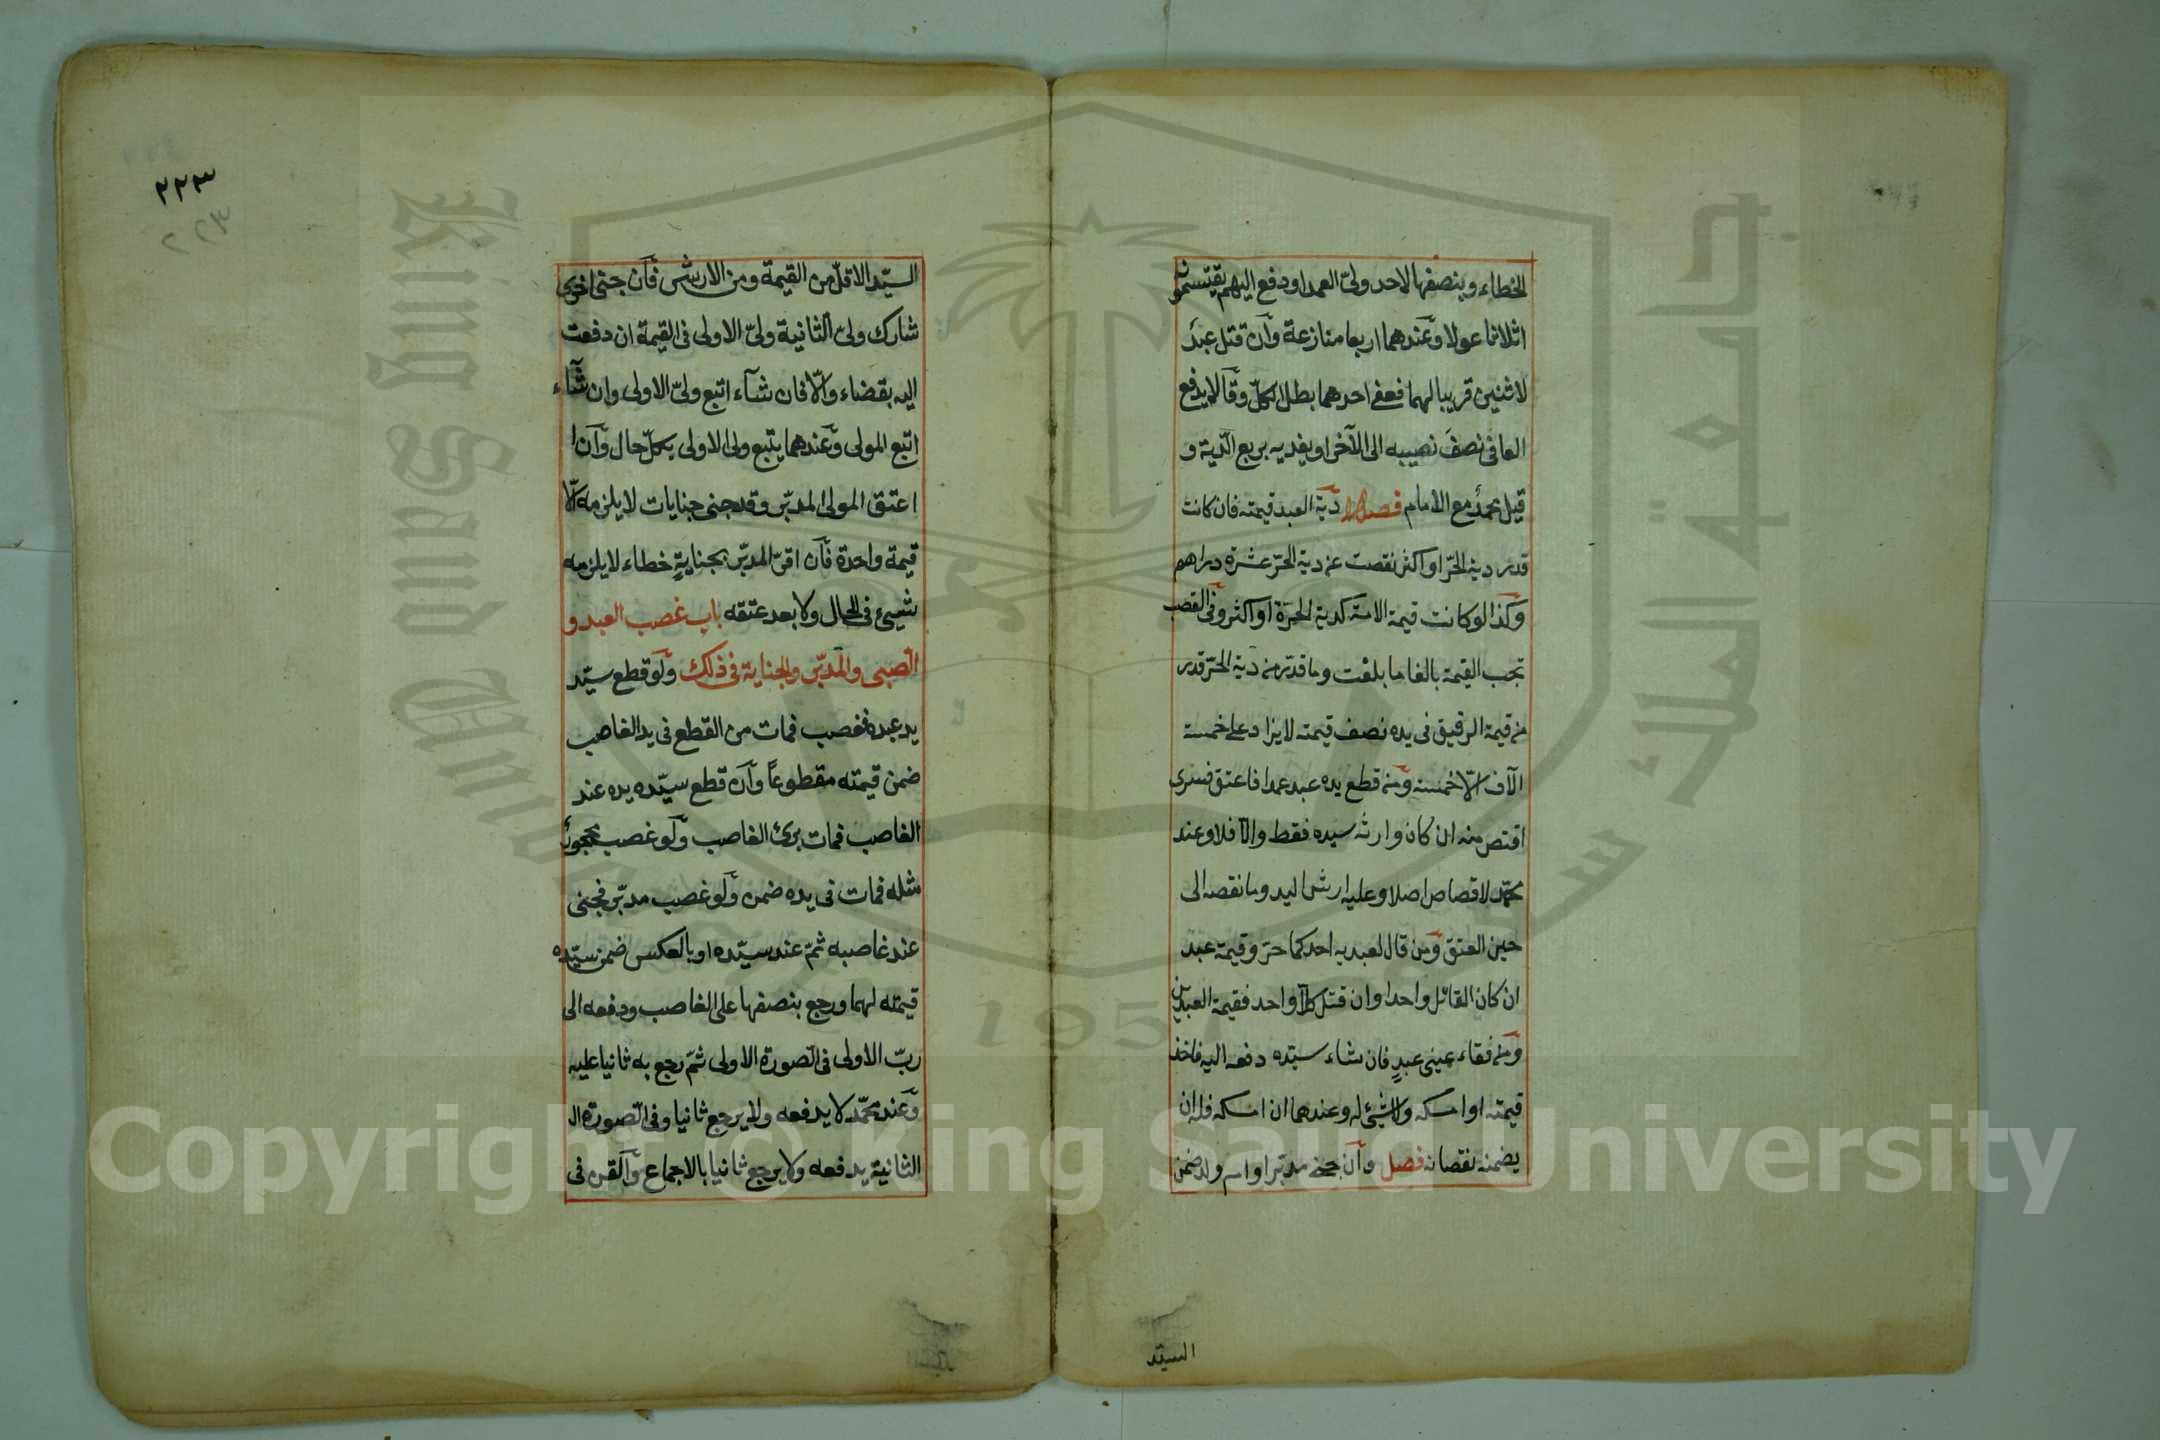 للخطاء وبنصفها لاحد ولىّ العمد او دفع اليهم يقتسمونه
اثلاثا عولا وعندهما ارباعا منازعة وان قتل عبد
لاثنين قريبا لهما فعفى احدهما بطل الكلّ وقالا يدفع
العافى نصف نصيبه الى الآخر او يفديه بربع الدّية و
قيل محمّد مع الامام فصل دية العبد قيمته فان كانت
قدر دية الحرّ او اكثر نقصت عن دية الحرّ عشرة دراهم
وكذا لو كانت قيمة الامة كدية الحرّة او اكثر وفى الغصب
تجب القيمة بالغا ما بلغت وما قدّر من دية الحرّ قدر
من قيمة الرقيق فى يده نصف قيمته لا يزاد على خمسة
الآف الّا خمسة ومن قطع يده عبد عمدا فاعتق فسرى
اقتص منه ان كان وارثه سيده فقط والّا فلا وعند
محمّد لا قصاص اصلا وعليه ارش اليد وما نقصه الى
حين العتق ومن قال لعبديه احدكما حرّ وقيمة عبد
ان كان القاتل واحدا وان قتل كلّا واحد فقيمة العبدين
ومن فقاء عينى عبدٍ فان شاء سيّده دفعه اليه فاخذ
قيمته او امسكه ولا شئ له وعندهما ان امسكه فله ان
يضمنه نقصانه فصل وان جنى مدبّر او ام ولد ضمن
السيّد
٢٢٣
٢٢٣
السيّد الاقلّ من القيمة ومن الارش فان جنى اخرى
شارك ولىّ الثانية ولىّ الاولى فى القيمة ان دفعت
اليه بقضاء والّا فان شآء اتبع ولىّ الاولى وان شآء
اتبع المولى وعندهما يتبع ولى الاولى بكلّ حال وان ا
اعتق المولى المدبّر وقد جنى جنايات لا يلزمه الّا
قيمة واحدة فان اقرّ المدبّر بجنايةٍ خطاء لا يلزمه
شيئ فى الحال ولا بعد عتقه باب غصب العبد و
الصبى والمدبّر والجناية فى ذلك ولو قطع سيّد
يد عبده فغصب فمات من القطع فى يد الغاصب
ضمن قيمته مقطوعاً وان قطع سيّده يده عند
الغاصب فمات برئ الغاصب ولو غصب محجور
مثله فمات فى يده ضمن ولو غصب مدبّر فجنى
عند غاصبه ثمّ عند سيّده او بالعكس ضمن سيّده
قيمته لهما ورجع بنصفها على الغاصب ودفعه الى
ربّ الاولى فى الصورة الاولى ثمّ رجع به ثانيا عليه
وعند محمّد لا يدفعه ولا يرجع ثانيا وفى الصورة ال
الثانية يدفعه ولا يرجع ثانيا بالاجماع والقن فى
King Saud
جامعة الملك سعود
1957
Copyright © King Saud University